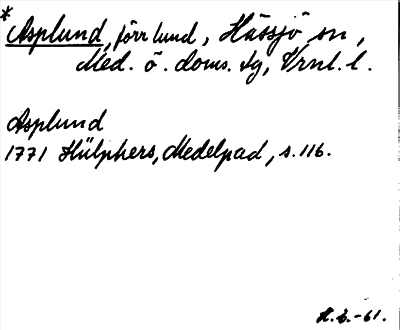 * Asplund, förr lund, Hässjö sn,
Med. ö. doms. tg, Vrnl. l.
Asplund
1771 Hülphers, Medelpad, s. 116.
H.S. -61.